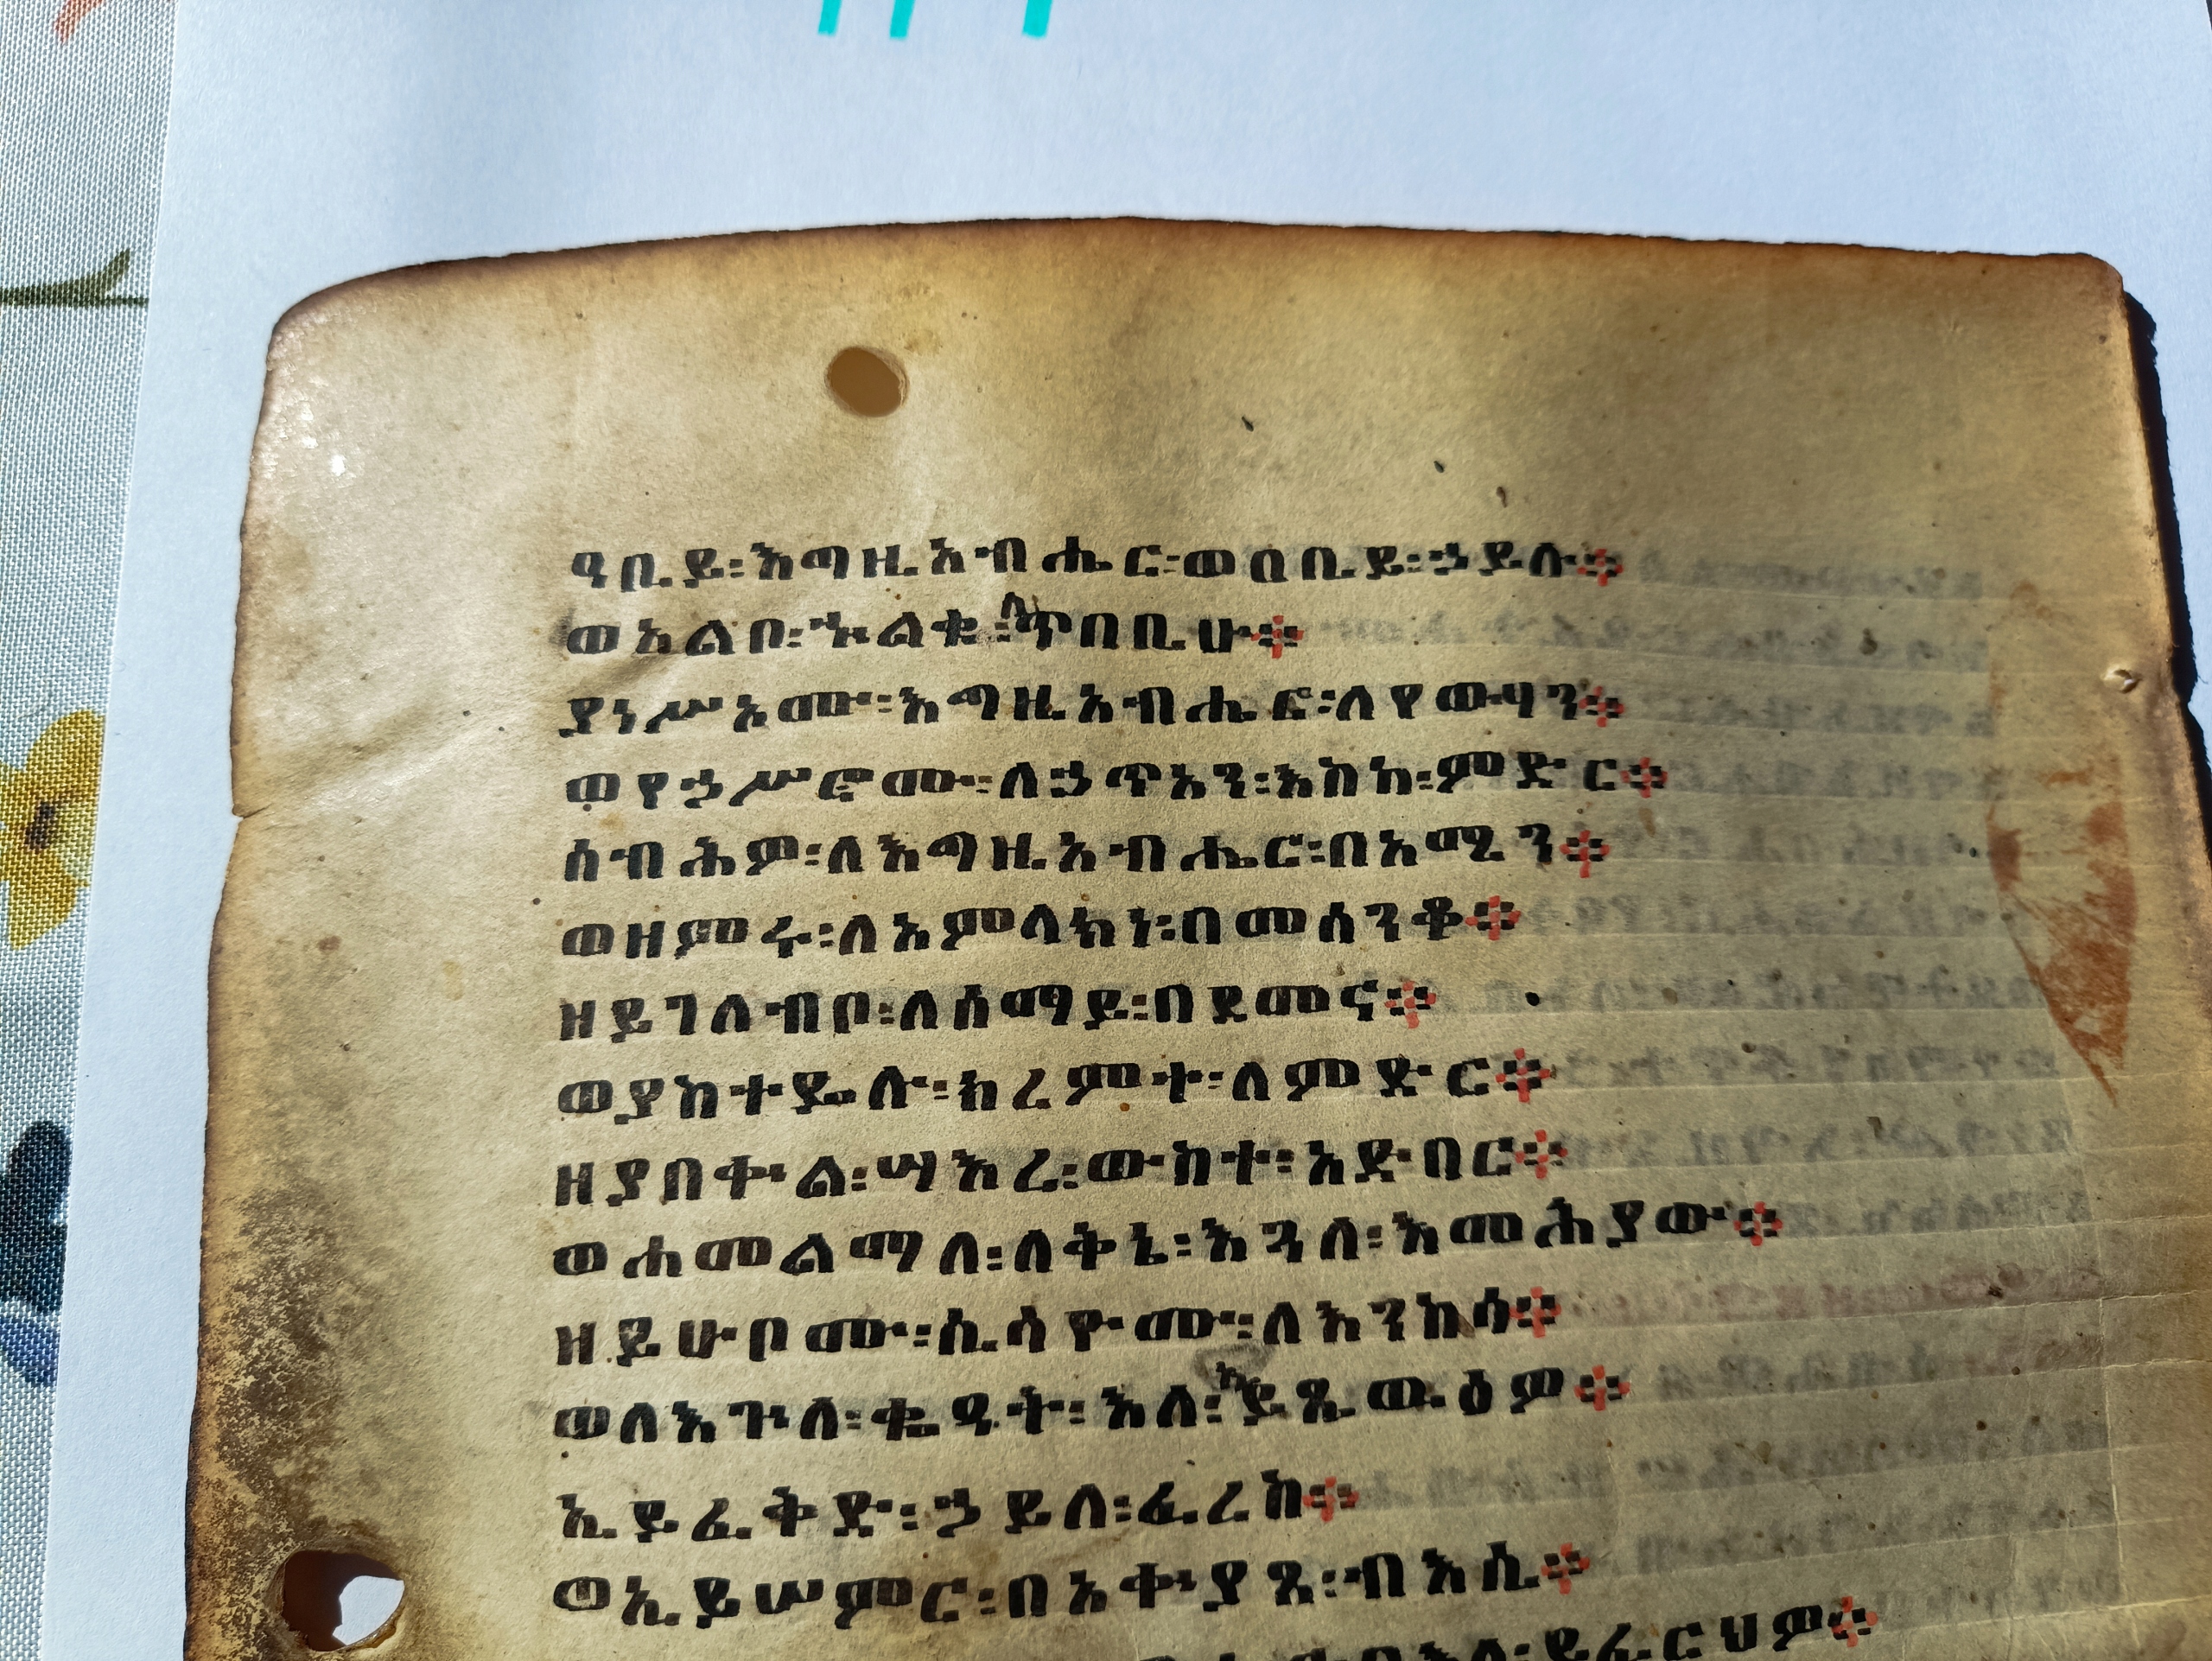 ዓቢይ፡እግዚአብሔር፡ወዐቢይ፡ኃይሉ፨
ወአልቦ፡ኍልቁ፡ለጥበቢሁ፨
ያነሥኦሙ፡እግዚአብሔር፡ለየውሃን፨
ወየኃሥሮሙ፡ለኃጥአን፡እስከ፡ምድር፨
ሰብሕዎ፡ለእግዚአብሔር፡በአሚን፨
ወዘምሩ፡ለአምላክነ፡በመሰንቆ፨
ዘይገለብቦ፡ለሰማይ፡በደመና፨
ወያስተዴሉ፡ክረምተ፡ለምድር፨
ዘያበቍል፡ሣእረ፡ውስተ፡አድባር፨
ወሐመልማለ፡ለቅኔ፡እጓለ፡እመሕያው፨
ዘይሁቦሙ፡ሲሳዮሙ፡ለእንስሳ፨
ወለእጕለ፡ቋዓት፡እለ፡ይጼውዕዎ፨
ኢይፈቅድ፡ኃይለ፡ፈረስ፨
ወኢይሠምር፡በአቍያጸ፡ብእሲ፨
ይፈርህዎ፨